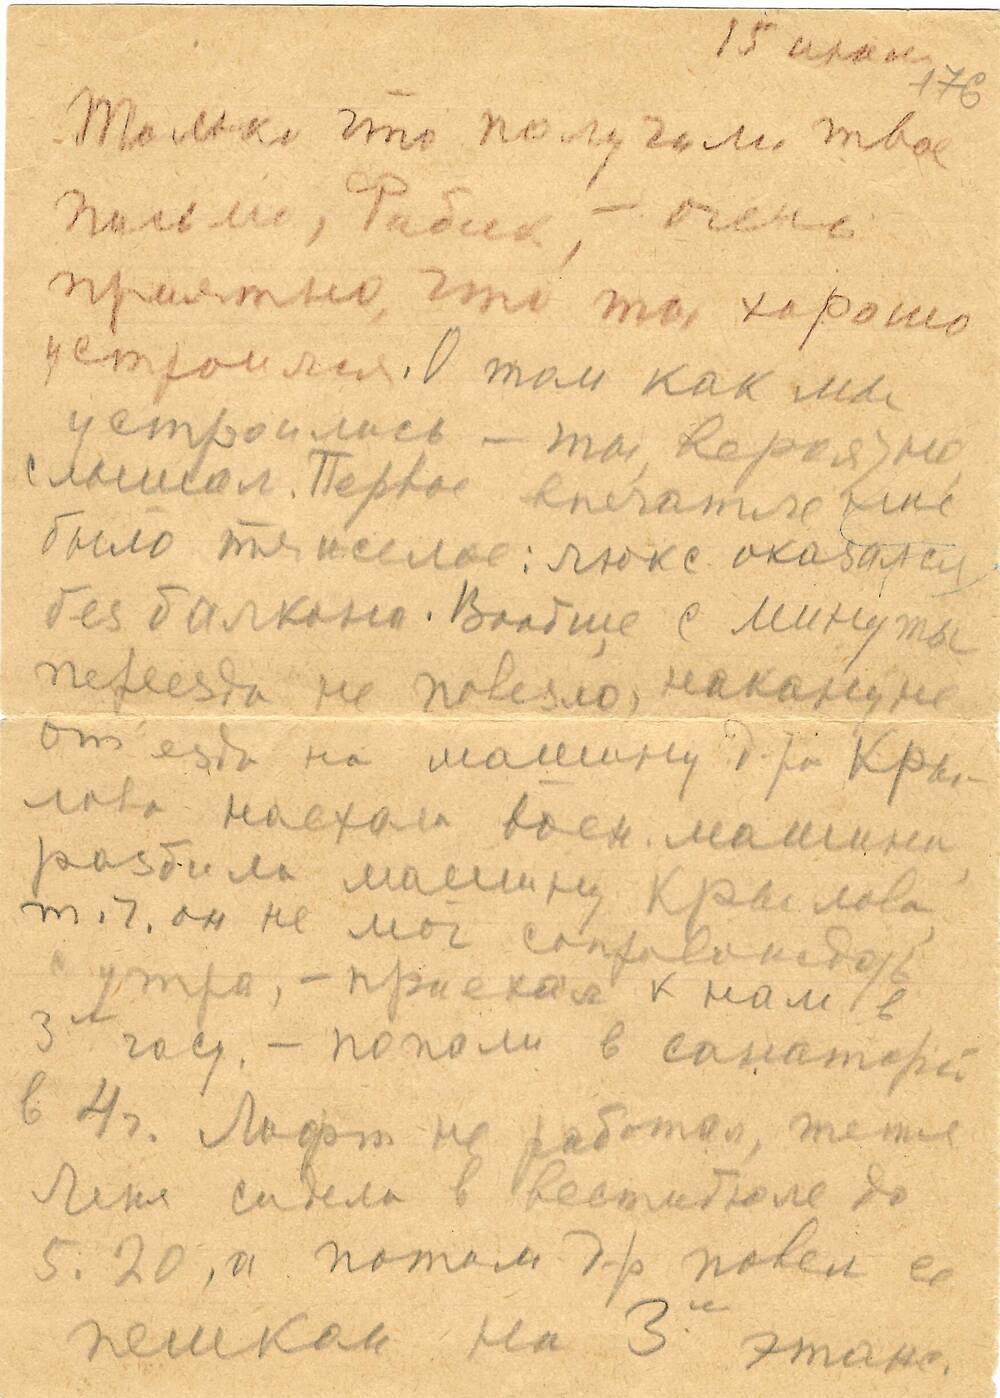 15 июня
176
Только что получили твое
письмо, Рабик, – очень
приятно, что ты хорошо
устроился. О том как мы
устроились – ты, вероятно,
слышал. Первое впечатление
было тяжелое: люкс оказался
без балкона. Вообще с минуты
переезда не повезло, накануне
от'езда на машину д-ра Кры-
лова наехала воен. машина,
разбила машину Крылова,
т.ч. он не мог сопровождать
с утра, – приехал к нам в
3м часу. – попали в санаторий
в 4 ч. Лифт не работал, тетя
Леня сидела в вестибюле до
5.20, а потом д-р повел ее
пешком на 3й этаж.